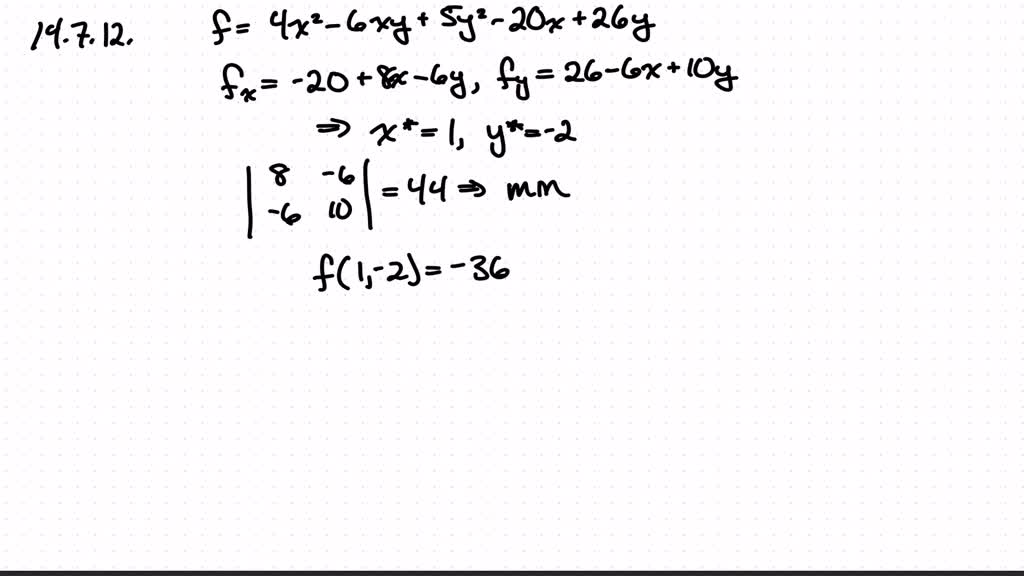 14.7.12. f = 4x² - 6xy + 5y² - 20x + 26y
fₓ = -20 + 8x - 6y, f_y = 26 - 6x + 10y
⇒ x* = 1, y* = -2
| 8 -6 |
| -6 10 | = 44 ⇒ min
f(1,-2) = -36